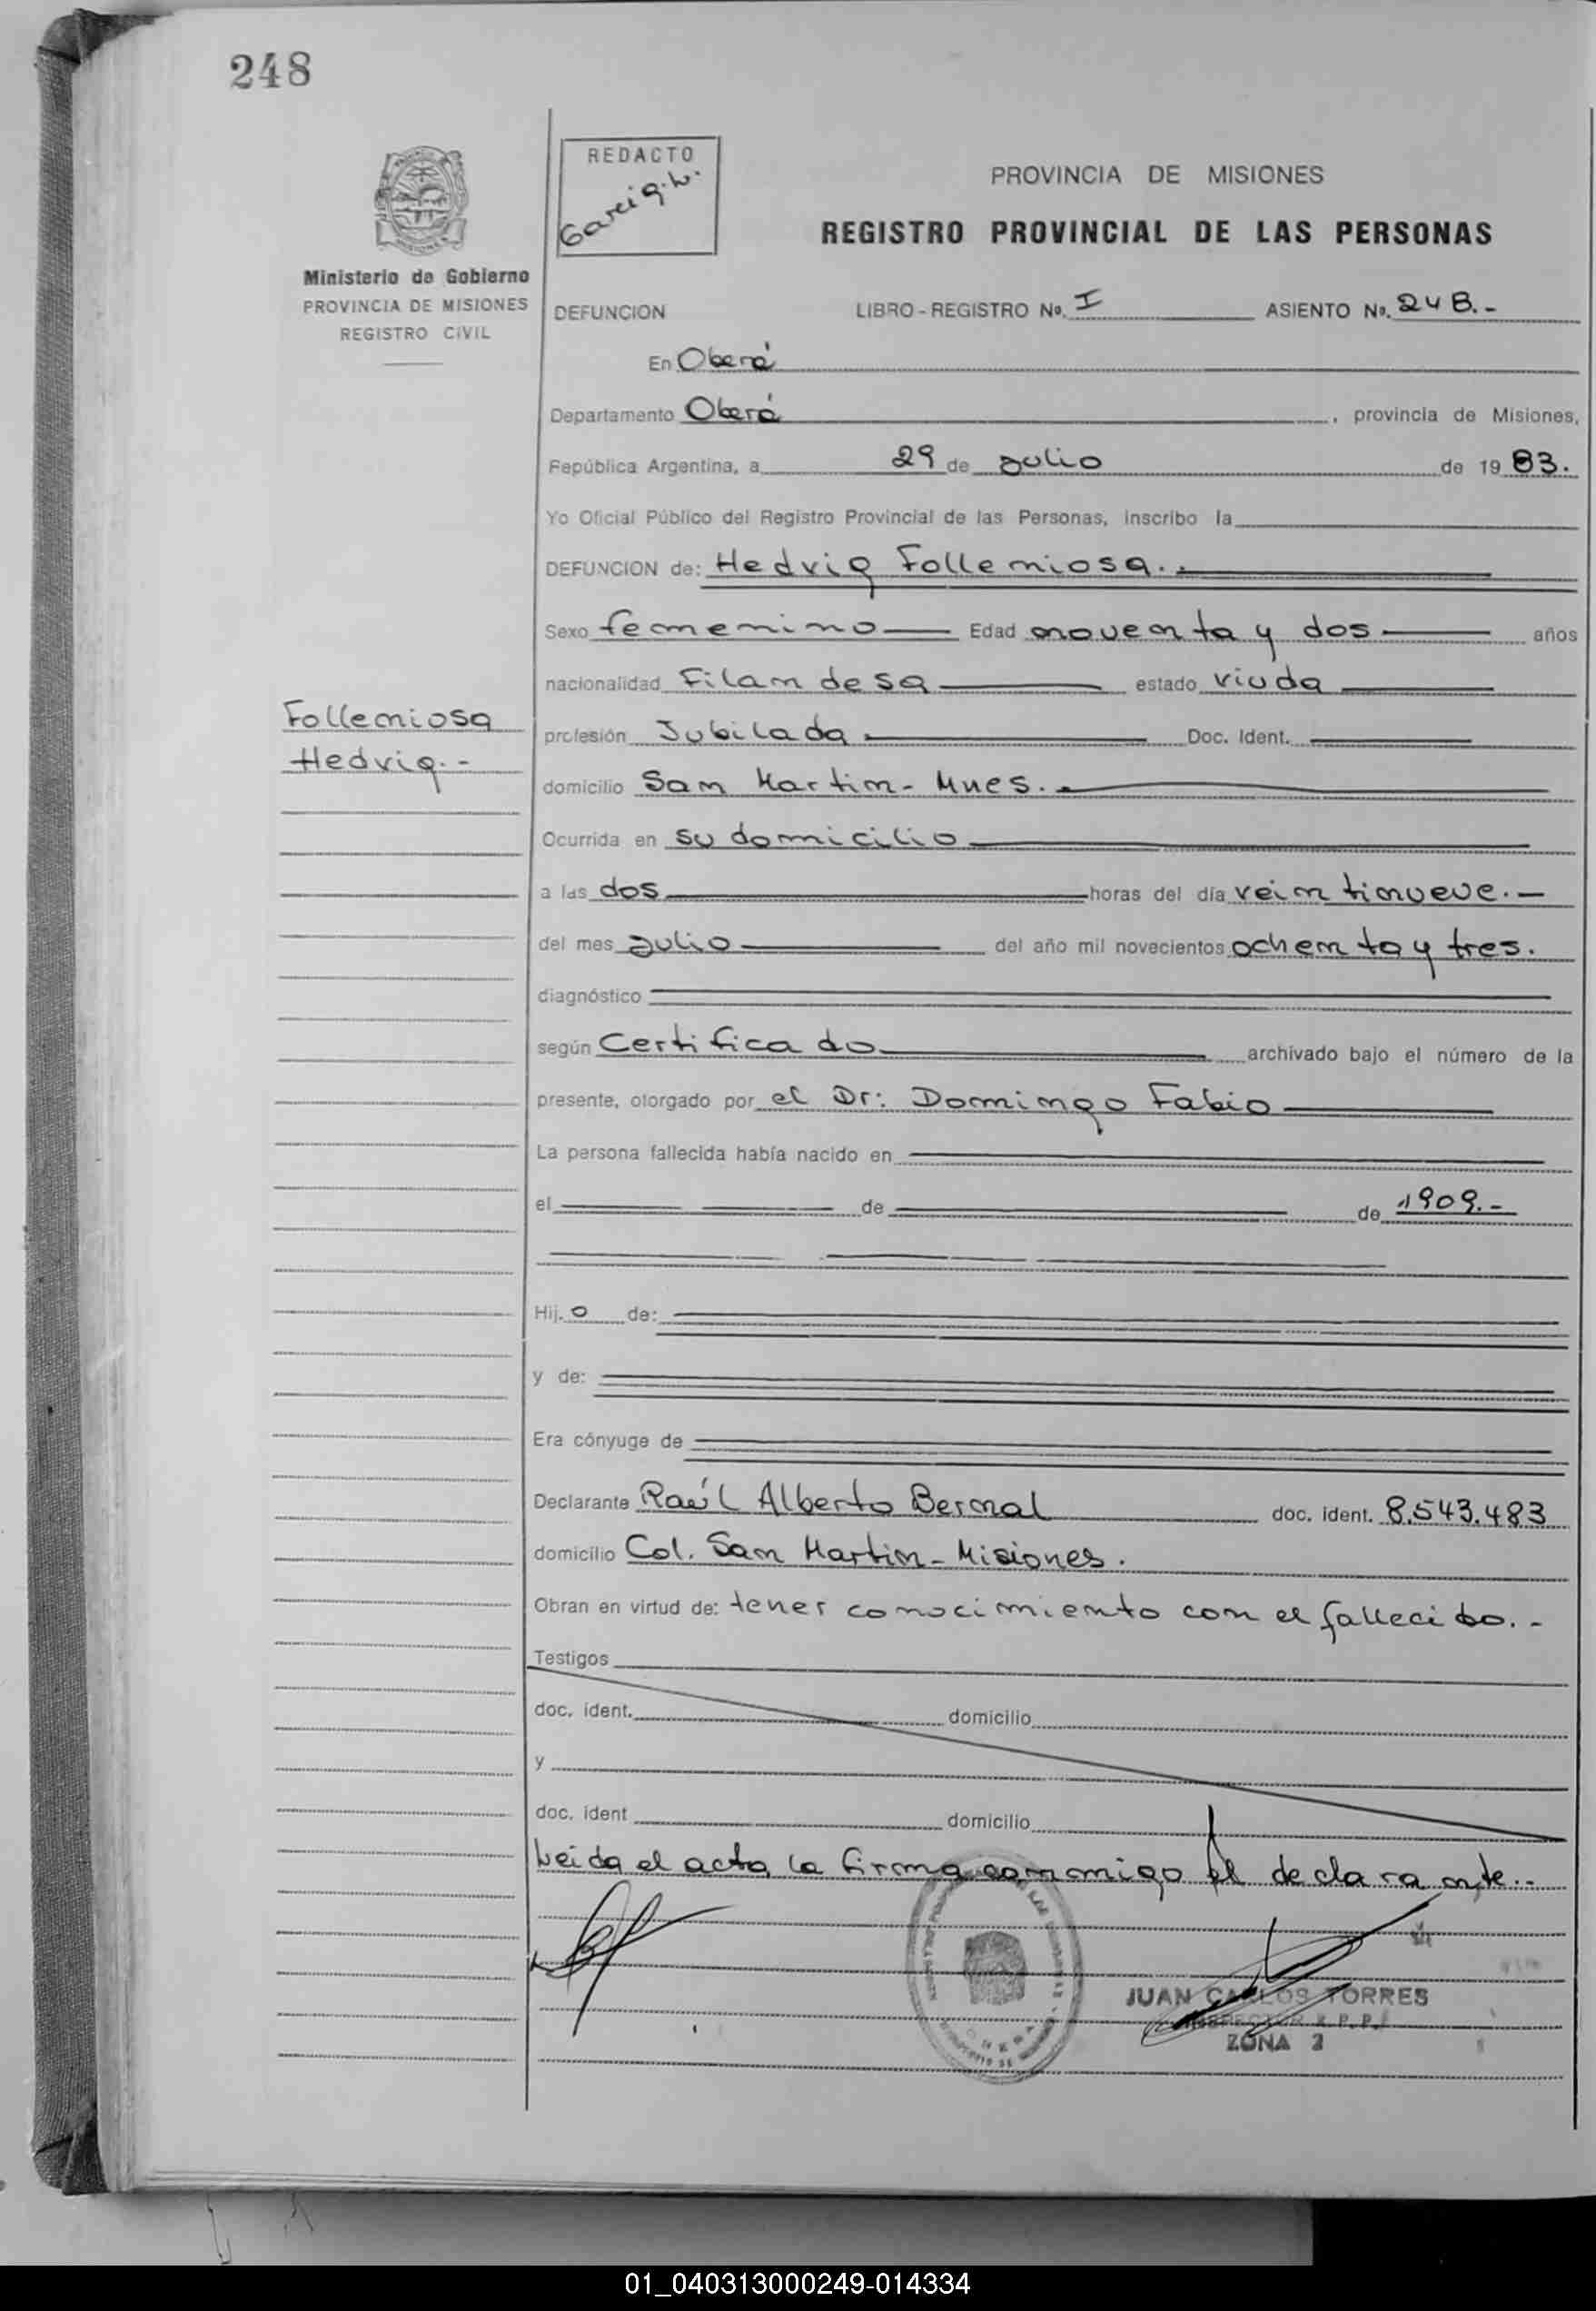 248
REDACTO
Garcia.L.
PROVINCIA DE MISIONES
REGISTRO PROVINCIAL DE LAS PERSONAS
Ministerio de Gobierno
PROVINCIA DE MISIONES
REGISTRO CIVIL
DEFUNCION LIBRO - REGISTRO No. I ASIENTO No. 248.-
En Oberá
Departamento Oberá, provincia de Misiones,
República Argentina, a 29 de Julio de 19 83.
Yo Oficial Público del Registro Provincial de las Personas, inscribo la
DEFUNCION de: Hedvig Follemiosa.
Sexo femenino Edad noventa y dos años
nacionalidad Filandesa estado viuda
Follemiosa
Hedvig.-
profesión Jubilada Doc. Ident.
domicilio San Martin - Mnes.
Ocurrida en su domicilio
a las dos horas del día veintinueve.-
del mes Julio del año mil novecientos ochenta y tres.
diagnóstico
según Certificado archivado bajo el número de la
presente, otorgado por el Dr: Domingo Fabio
La persona fallecida había nacido en
el de de 1909.-
Hij. o de:
y de:
Era cónyuge de
Declarante Raúl Alberto Bernal doc. ident. 8.543.483
domicilio Col. San Martin - Misiones.
Obran en virtud de: tener conocimiento con el fallecido.-
Testigos
doc. ident. domicilio
y
doc. ident domicilio
Leida el acta la firma conmigo el declarante.-
JUAN CARLOS TORRES
INSPECTOR R.P.P.
ZONA 2
01_040313000249-014334